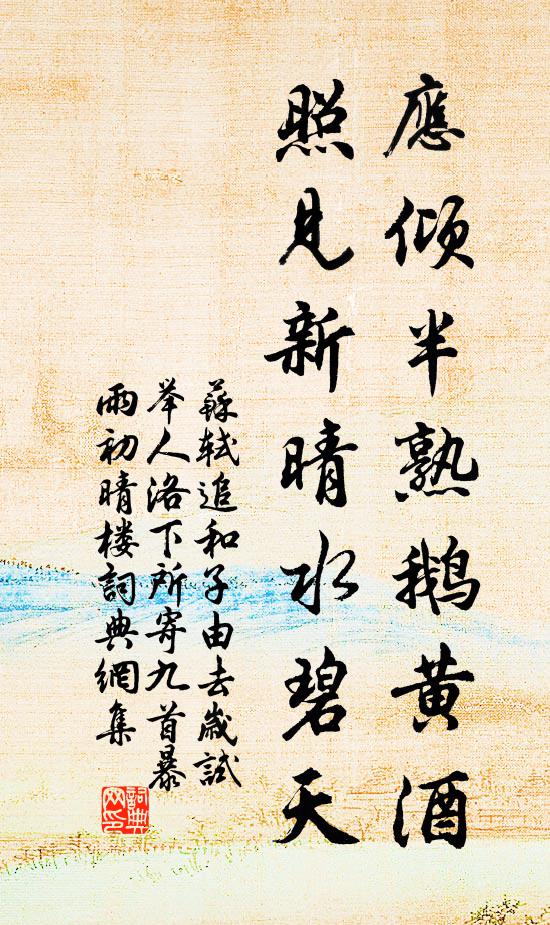 應傾半熟鹅黄酒
照見新晴水碧天
蘇軾追和子由去歲試
举人洛下所寄九首暴
雨初晴楼詞典網集
詞典
网印